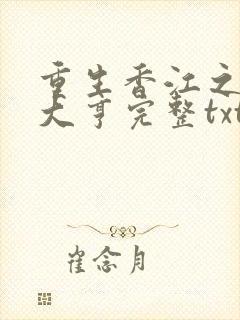 重生香江之
大亨完整txt
崔念月